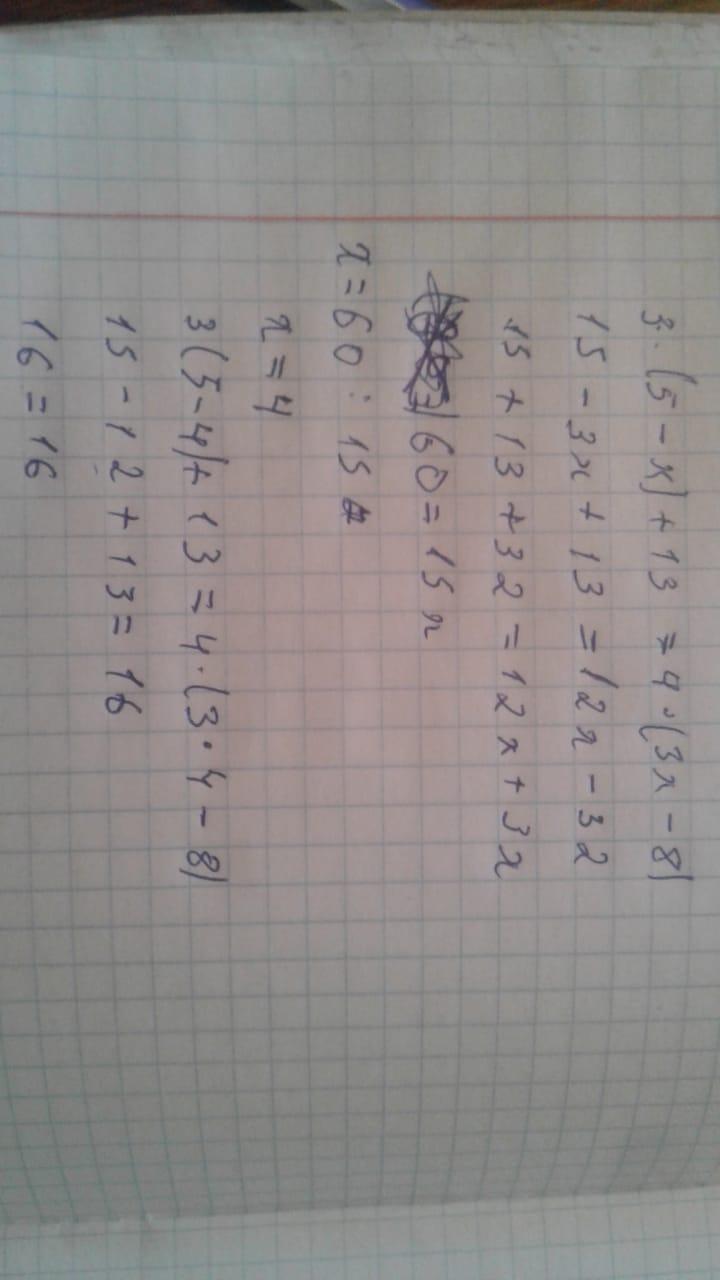 3·(5-x)+13=4·(3x-8)
15-3x+13=12x-32
15+13+32=12x+3x
60=15x
x=60:15
x=4
3(5-4)+13=4·(3·4-8)
15-12+13=16
16=16